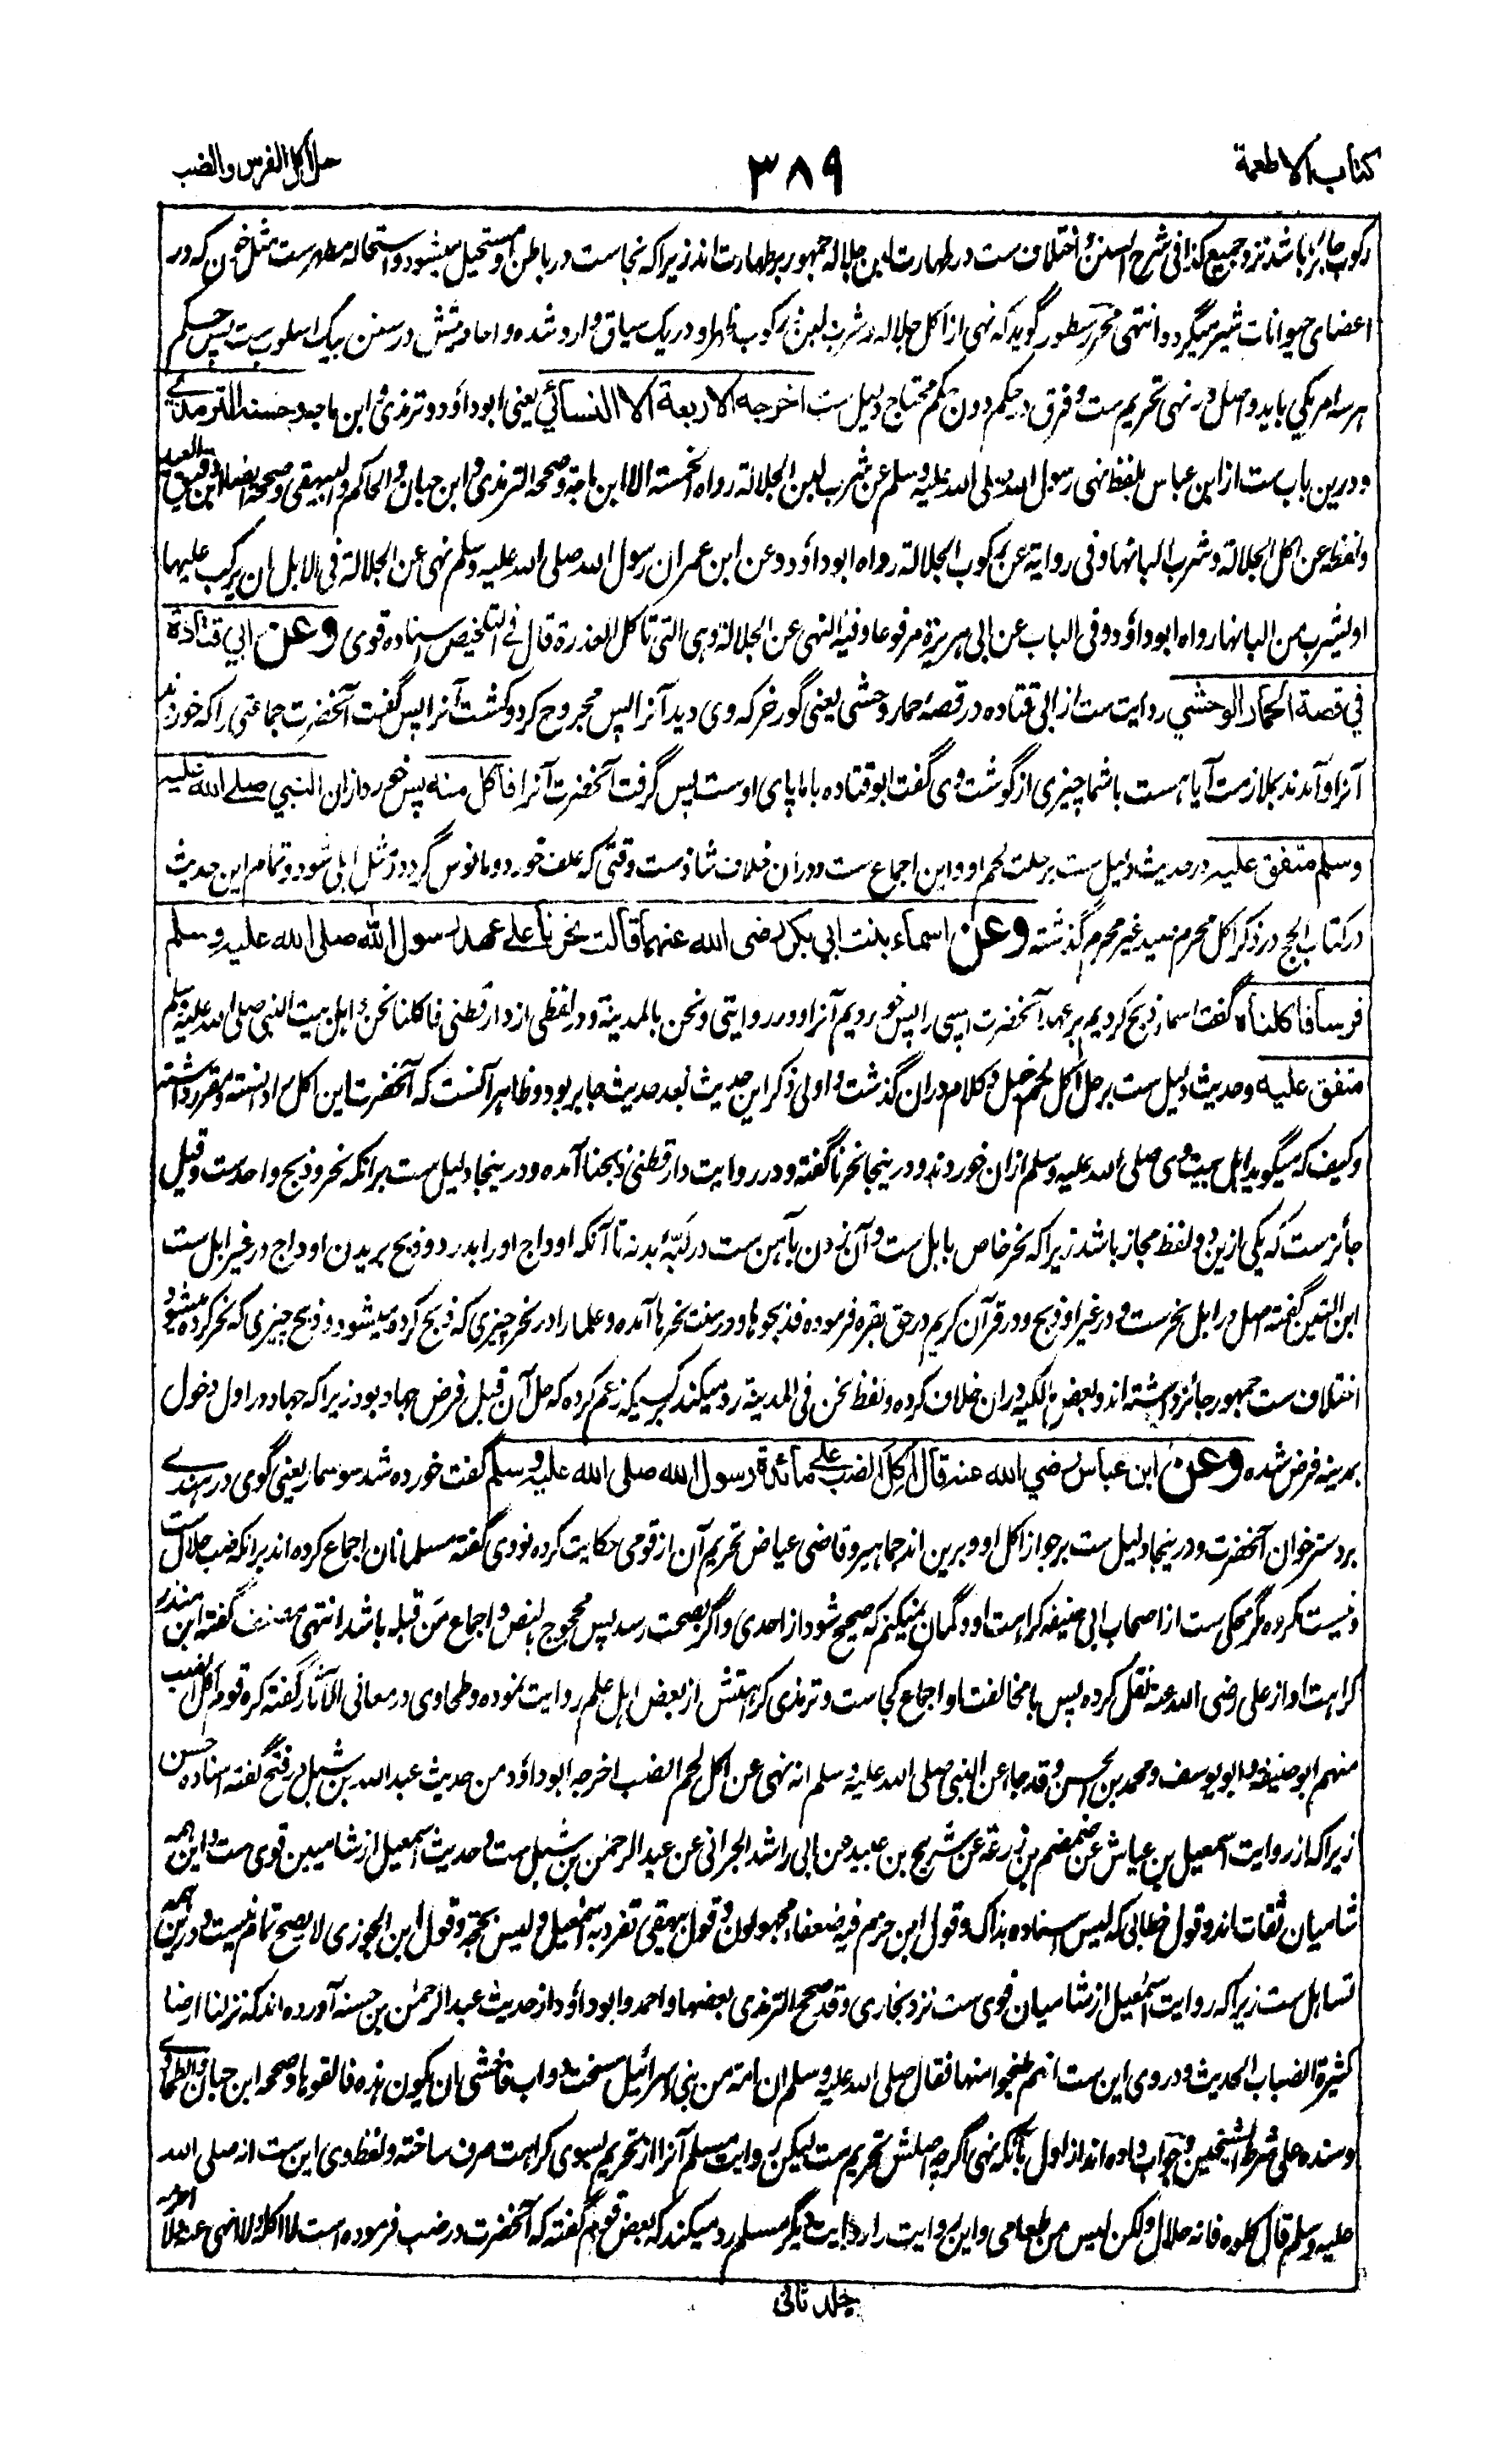 کتاب الاطعمة
۳۸۹
حل اکل الفرس والضب
رکوب جائز باشد نزد جمیع کذا فی شرح السنن و اختلاف ست در طهارت لبن جلاله جمهور بر طهارت اند زیرا که نجاست در باطن او مستحیل میشود و استحاله مطهر ست مثل خون که در
اعضای حیوانات شیر میگردد انتهی محرر سطور گوید که نهی از اکل جلاله و شرب لبن و رکوب ظهر او در یک سیاق وارد شده و احادیثش در سنن بیک اسلوب ست پس حکم
هر سه امر یکی باید و اصل در نهی تحریم ست و فرق در حکم دون حکم محتاج دلیل ست اخرجه الاربعة الا النسائی یعنی ابوداؤد و ترمذی و ابن ماجه وحسنه الترمذی
و درین باب ست از ابن عباس بلفظ نهی رسول الله صلی الله علیه وسلم عن شرب لبن الجلالة رواه الخمسة الا ابن ماجة وصححه الترمذی و ابن حبان والحاکم والبیهقی وصححه ایضا ابن دقیق العید
ولفظه عن اکل الجلالة وشرب البانها وفی روایة عن رکوب الجلالة رواه ابوداؤد وعن ابن عمر ان رسول الله صلی الله علیه وسلم نهی عن الجلالة فی الابل ان یرکب علیها
او یشرب من البانها رواه ابوداؤد وفی الباب عن ابی هریرة مرفوعا وفیه النهی عن الجلالة وهی التی تاکل العذرة قال فی التلخیص اسناده قوی وعن ابی قتادة
فی قصة الحمار الوحشی روایت ست از ابی قتاده در قصهٔ حمار وحشی یعنی گورخر که وی دید آنرا پس مجروح کرد و کشت آنرا پس گفت آنحضرت جماعتی را که خوردند
آنرا و آمدند بملازمت آیا هست با شما چیزی از گوشت وی گفت ابوقتاده با ما پای اوست پس گرفت آنحضرت آنرا فاکل منه پس خورد ازان النبی صلی الله علیه
وسلم متفق علیه در حدیث دلیل ست بر حلت لحم او و این اجماع ست و دران خلاف شاذست وقتی که علف خورد و مانوس گردد و مثل اهلی شود و تمام این حدیث
در کتاب الحج در ذکر اکل محرم صید غیر محرم گذشته وعن اسماء بنت ابی بکر رضی الله عنهما قالت نحرنا علی عهد رسول الله صلی الله علیه وسلم
فرسا فاکلناه گفت اسما ذبح کردیم بر عهد آنحضرت اسپی را پس خوردیم آنرا و در روایتی ونحن بالمدینة و در لفظی از دارقطنی فاکلنا نحن و اهل بیت النبی صلی الله علیه وسلم
متفق علیه و حدیث دلیل ست بر حل اکل لحم خیل و کلام دران گذشت و اولی ذکر این حدیث بعد حدیث جابر بود و ظاهر آنست که آنحضرت این اکل را دانسته و مقرر داشته
وکیف که میگوید اهل بیت وی صلی الله علیه وسلم ازان خوردند و درینجا نحرنا گفته و در روایت دارقطنی ذبحنا آمده و درینجا دلیل ست برانکه نحر و ذبح واحد ست وقیل
جائزست که یکی ازین دو لفظ مجاز باشد زیرا که نحر خاص بابل ست و آن زدن بآهن ست در لبّهٔ بدنه تا آنکه اوداج او را بدرد و ذبح بریدن اوداج در غیر ابل ست
ابن التین گفته اصل در ابل نحرست و در غیر او ذبح و در قرآن کریم در حق بقره فرموده فذبحوها و در سنت نحرها آمده و علما را در نحر چیزی که ذبح کرده میشود و ذبح چیزی که نحر کرده میشود
اختلاف ست جمهور جائز داشته اند و بعض مالکیه دران خلاف کرده و لفظ نحن فی المدینة رد میکند بر کسیکه زعم کرده که حل آن قبل فرض جهاد بود زیرا که جهاد در اول دخول
بمدینه فرض شده وعن ابن عباس رضی الله عنه قال اکل الضب علی مائدة رسول الله صلی الله علیه وسلم گفت خورده شد سوسمار یعنی گوی در هندی
بر دسترخوان آنحضرت و درینجا دلیل ست بر جواز اکل او و برین اند جماهیر و قاضی عیاض تحریم آن از قومی حکایت کرده نووی گفته مسلمانان اجماع کرده اند برانکه ضب حلال ست
و نیست مکروه مگر محکی ست از اصحاب ابی حنیفه کراهت او و گمان نمیکنم که صحیح شود از احدی و اگر بصحت رسد پس محجوج بنص و اجماع من قبله باشد انتهی مصنف گفته ابن منذر
کراهت او از علی رضی الله عنه نقل کرده پس با مخالفت او اجماع کجاست و ترمذی کراهتش از بعض اهل علم روایت نموده و طحاوی در معانی الآثار گفته کره قوم اکل الضب
منهم ابوحنیفة وابو یوسف ومحمد بن الحسن وقد جاء عن النبی صلی الله علیه وسلم انه نهی عن اکل لحم الضب اخرجه ابوداؤد من حدیث عبدالله بن شبل در فتح گفته اسناده حسن
زیرا که از روایت اسمعیل بن عیاش عن ضمضم بن زرعة عن شریح بن عبید عن ابی راشد الحرانی عن عبدالرحمن بن شبل ست و حدیث اسمعیل از شامیین قوی ست و این همه
شامیان ثقات اند و قول خطابی که لیس اسناده بذاک وقول ابن حزم فیه ضعفاء مجهولون وقول بیهقی تفرد به اسمعیل ولیس بحجة وقول ابن الجوزی لا یصح تمام نیست و درین همه
تساهل ست زیرا که روایت اسمعیل از شامیان قوی ست نزد بخاری وقد صحح الترمذی بعضها و احمد و ابوداؤد از حدیث عبدالرحمن بن حسنه آورده اند که نزلنا ارضا
کثیرة الضباب الحدیث و در وی این ست انهم طبخوا منها فقال صلی الله علیه وسلم ان امة من بنی اسرائیل مسخت دواب فاخشی ان یکون هذه فالقوها وصححه ابن حبان والطحاوی
وسنده علی شرط الشیخین و جواب داده اند از اول بآنکه نهی اگرچه اصلش تحریم ست لیکن روایت مسلم آنرا از تحریم بسوی کراهت صرف ساخته و لفظ وی این ست انه صلی الله
علیه وسلم قال کلوه فانه حلال ولکن لیس من طعامی و این روایت را روایت دیگر مسلم رد میکند که بعض قوم گفته که آنحضرت در ضب فرموده است لا اکله ولا انهی عنه ولا
جلد ثانی